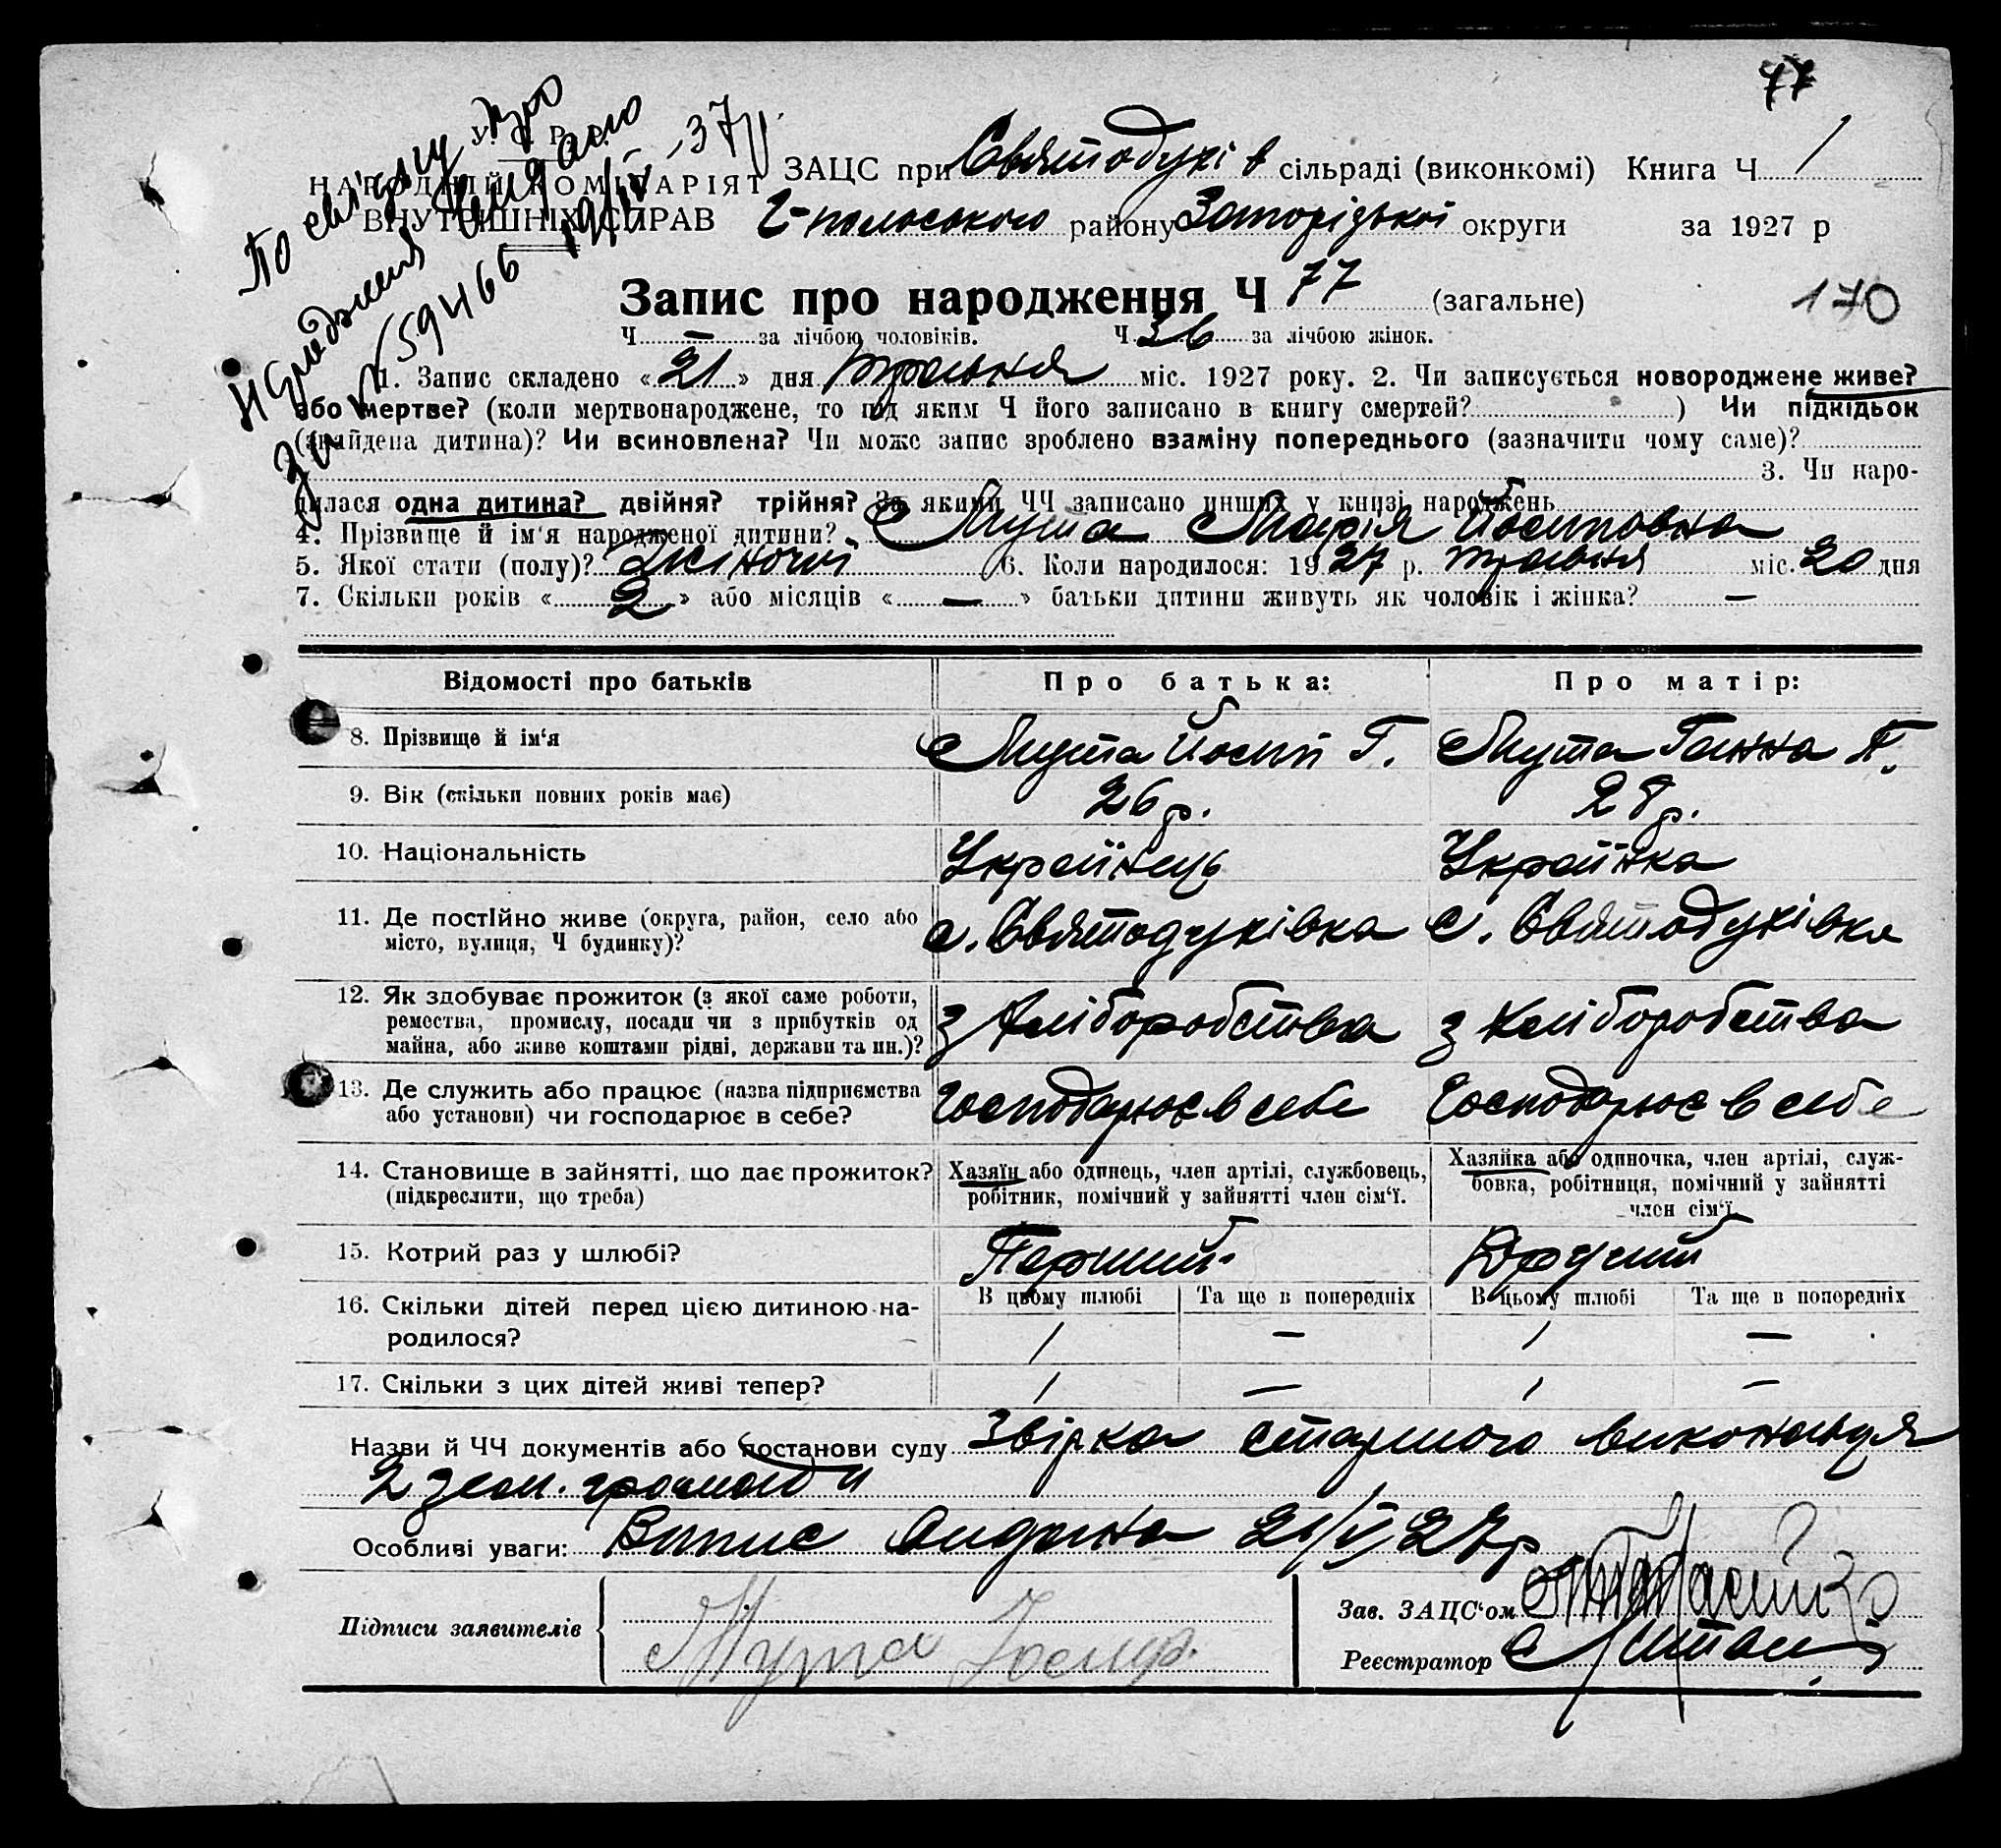 77
У. С. Р. Р.
НАРОДНІЙ КОМІСАРІЯТ
ВНУТРІШНІХ СПРАВ
По свідцу про
народження видано
за № 594466 19/IV-37р.
ЗАЦС при Святодухів сільраді (виконкомі) Книга Ч 1
Г-польського району Запорізької округи за 1927 р
Запис про народження Ч 77 (загальне)
170
Ч — за лічбою чоловіків. Ч 36 за лічбою жінок.
1. Запис складено « 21 » дня травня міс. 1927 року. 2. Чи записується новороджене живе?
або мертве? (коли мертвонароджене, то під яким Ч його записано в книгу смертей? ) Чи підкідьок
(знайдена дитина)? Чи всиновлена? Чи може запис зроблено взаміну попереднього (зазначити чому саме)?
3. Чи наро-
дилася одна дитина? двійня? трійня? За якими ЧЧ записано инших у книзі народжень
4. Прізвище й ім'я народженої дитини? Мута Марія Йосиповна
5. Якої стати (полу)? Жіночої 6. Коли народилося: 1927 р. травня міс. 20 дня
7. Скільки років « 2 » або місяців « — » батьки дитини живуть як чоловік і жінка? —
Відомості про батьків Про батька: Про матір:
8. Прізвище й ім'я Мута Йосип Г. Мута Ганна П.
9. Вік (скільки повних років має) 26 р. 28 р.
10. Національність Українець Українка
11. Де постійно живе (округа, район, село або
місто, вулиця, Ч будинку)? с. Святодухівка с. Святодухівка
12. Як здобуває прожиток (з якої саме роботи,
ремества, промислу, посади чи з прибутків од
майна, або живе коштами рідні, держави та ин.)? з хліборобства з хліборобства
13. Де служить або працює (назва підприємства
або установи) чи господарює в себе? Господарює в себе Господарює в себе
14. Становище в зайнятті, що дає прожиток?
(підкреслити, що треба)
Хазяїн або одинець, член артілі, службовець,
робітник, помічний у зайнятті член сім'ї.
Хазяйка або одиночка, член артілі, служ-
бовка, робітниця, помічний у зайнятті
член сім'ї.
15. Котрий раз у шлюбі? Перший Другий
В цьому шлюбі Та ще в попередніх В цьому шлюбі Та ще в попередніх
16. Скільки дітей перед цією дитиною на-
родилося? 1 — 1 —
17. Скільки з цих дітей живі тепер? 1 — 1 —
Назви й ЧЧ документів або постанови суду Звірка старшого виконавця
2 зем. громади
Особливі уваги: Випис видана 21/V 27р
Підписи заявителів Мута Іосиф.
Зав. ЗАЦС'ом
Реєстратор